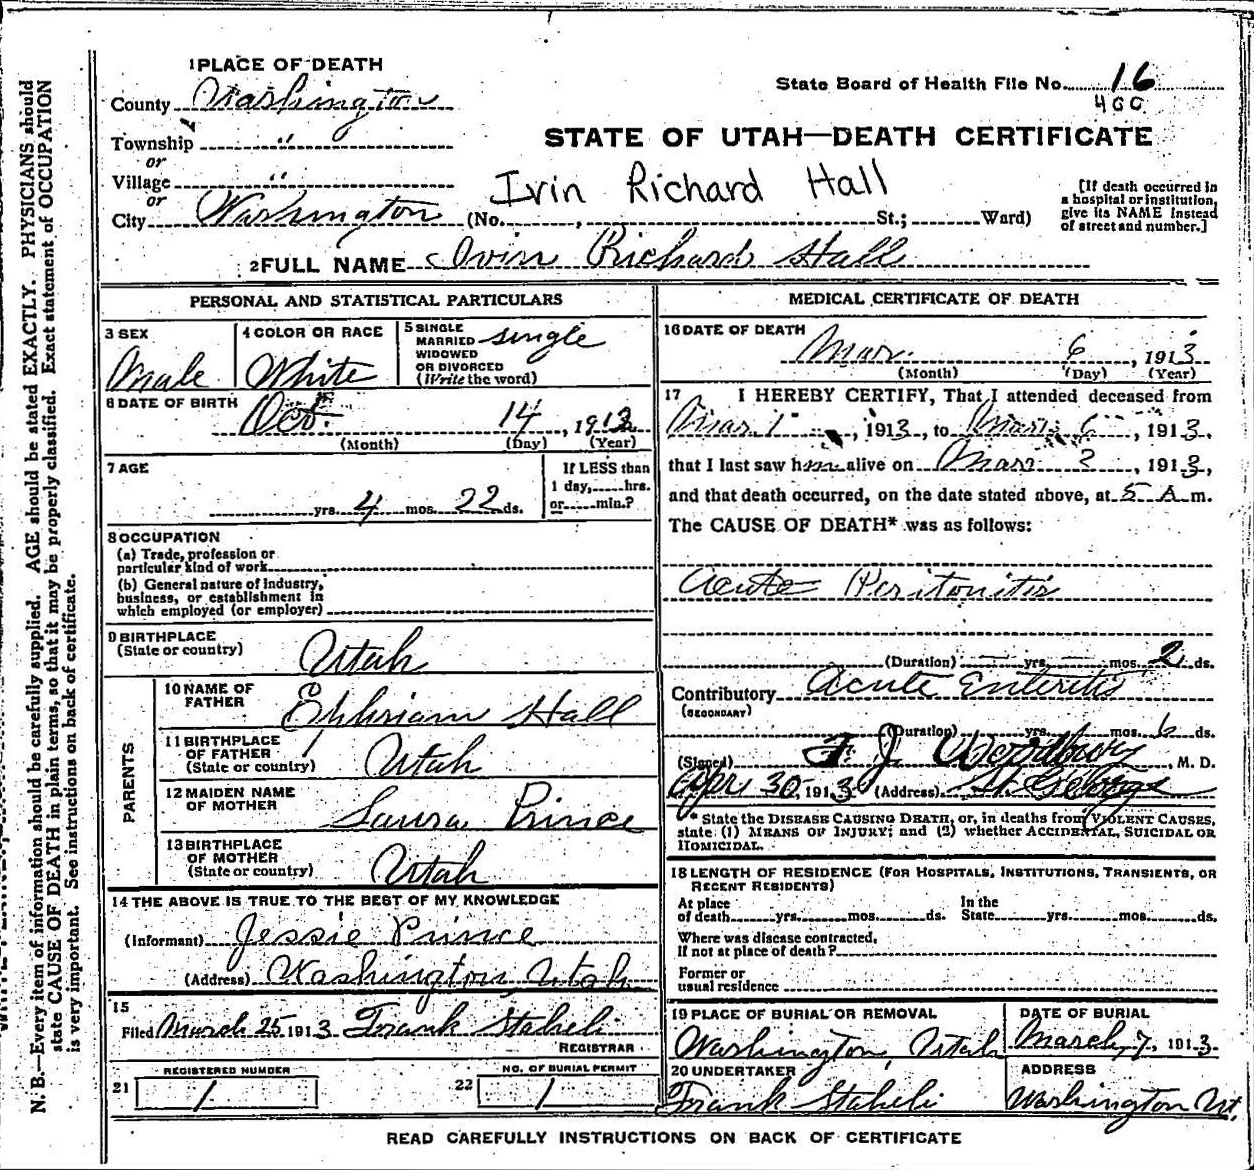 1 PLACE OF DEATH
County Washington
Township "
or
Village "
or
City Washington (No. , St.; Ward)
State Board of Health File No. 16
400
STATE OF UTAH—DEATH CERTIFICATE
Ivin Richard Hall
[If death occurred in
a hospital or institution,
give its NAME instead
of street and number.]
2 FULL NAME Ivin Richard Hall
PERSONAL AND STATISTICAL PARTICULARS
3 SEX
Male
4 COLOR OR RACE
White
5 SINGLE
MARRIED
WIDOWED
OR DIVORCED
(Write the word)
single
6 DATE OF BIRTH
Oct. 14, 1912
(Month) (Day) (Year)
7 AGE
yrs. 4 mos. 22 ds.
If LESS than
1 day, hrs.
or min.?
8 OCCUPATION
(a) Trade, profession or
particular kind of work
(b) General nature of industry,
business, or establishment in
which employed (or employer)
9 BIRTHPLACE
(State or country)
Utah
PARENTS
10 NAME OF
FATHER
Ephriam Hall
11 BIRTHPLACE
OF FATHER
(State or country)
Utah
12 MAIDEN NAME
OF MOTHER
Laura Prince
13 BIRTHPLACE
OF MOTHER
(State or country)
Utah
14 THE ABOVE IS TRUE TO THE BEST OF MY KNOWLEDGE
(Informant) Jessie Prince
(Address) Washington, Utah
15
Filed March 25 1913 Frank Staheli
REGISTRAR
21 REGISTERED NUMBER
1
22 NO. OF BURIAL PERMIT
1
MEDICAL CERTIFICATE OF DEATH
16 DATE OF DEATH
Mar. 6, 1913
(Month) (Day) (Year)
17 I HEREBY CERTIFY, That I attended deceased from
Mar 1, 1913, to Mar. 6, 1913,
that I last saw him alive on Mar 2, 1913,
and that death occurred, on the date stated above, at 5 A m.
The CAUSE OF DEATH* was as follows:
Acute Peritonitis
(Duration) — yrs. — mos. 2 ds.
Contributory Acute Enteritis
(SECONDARY)
(Duration) yrs. mos. 6 ds.
(Signed) F. J. Woodbury, M. D.
Apr 30, 1913 (Address) St. George
* State the DISEASE CAUSING DEATH, or, in deaths from VIOLENT CAUSES,
state (1) MEANS OF INJURY; and (2) whether ACCIDENTAL, SUICIDAL OR
HOMICIDAL.
18 LENGTH OF RESIDENCE (FOR HOSPITALS, INSTITUTIONS, TRANSIENTS, OR
RECENT RESIDENTS)
At place
of death yrs. mos. ds.
In the
State yrs. mos. ds.
Where was disease contracted,
if not at place of death?
Former or
usual residence
19 PLACE OF BURIAL OR REMOVAL
Washington, Utah
DATE OF BURIAL
March, 7, 1913
20 UNDERTAKER
Frank Staheli
ADDRESS
Washington Ut.
READ CAREFULLY INSTRUCTIONS ON BACK OF CERTIFICATE
N. B.—Every item of information should be carefully supplied. AGE should be stated EXACTLY. PHYSICIANS should
state CAUSE OF DEATH in plain terms, so that it may be properly classified. Exact statement of OCCUPATION
is very important. See instructions on back of certificate.